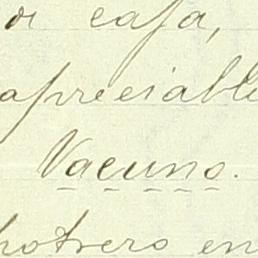 casa,
apreciable
Vacuno.
potrero en